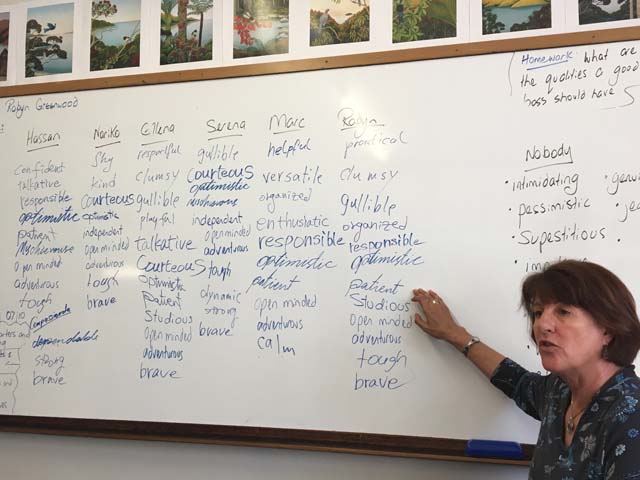 Robyn Greenwood
Homework: What are
the qualities a good
boss should have
Hassan
confident
talkative
responsible
optimistic
patient
open minded
adventurous
tough
dependable
strong
brave
Nariko
Shy
kind
courteous
optimistic
independent
open minded
adventurous
tough
brave
Ellena
clumsy
gullible
playful
talkative
Courteous
Optimistic
patient
Studious
open minded
adventurous
brave
Serena
gullible
Courteous
optimistic
independent
open minded
adventurous
tough
dynamic
strong
brave
Marc
helpful
versatile
organized
enthustatic
responsible
optimistic
patient
open minded
adventurous
calm
Robyn
practical
clumsy
gullible
organized
responsible
optimistic
patient
Studious
Open minded
adventurous
tough
brave
Nobody
• intimidating
• pessimistic
• Supestitious
07/10